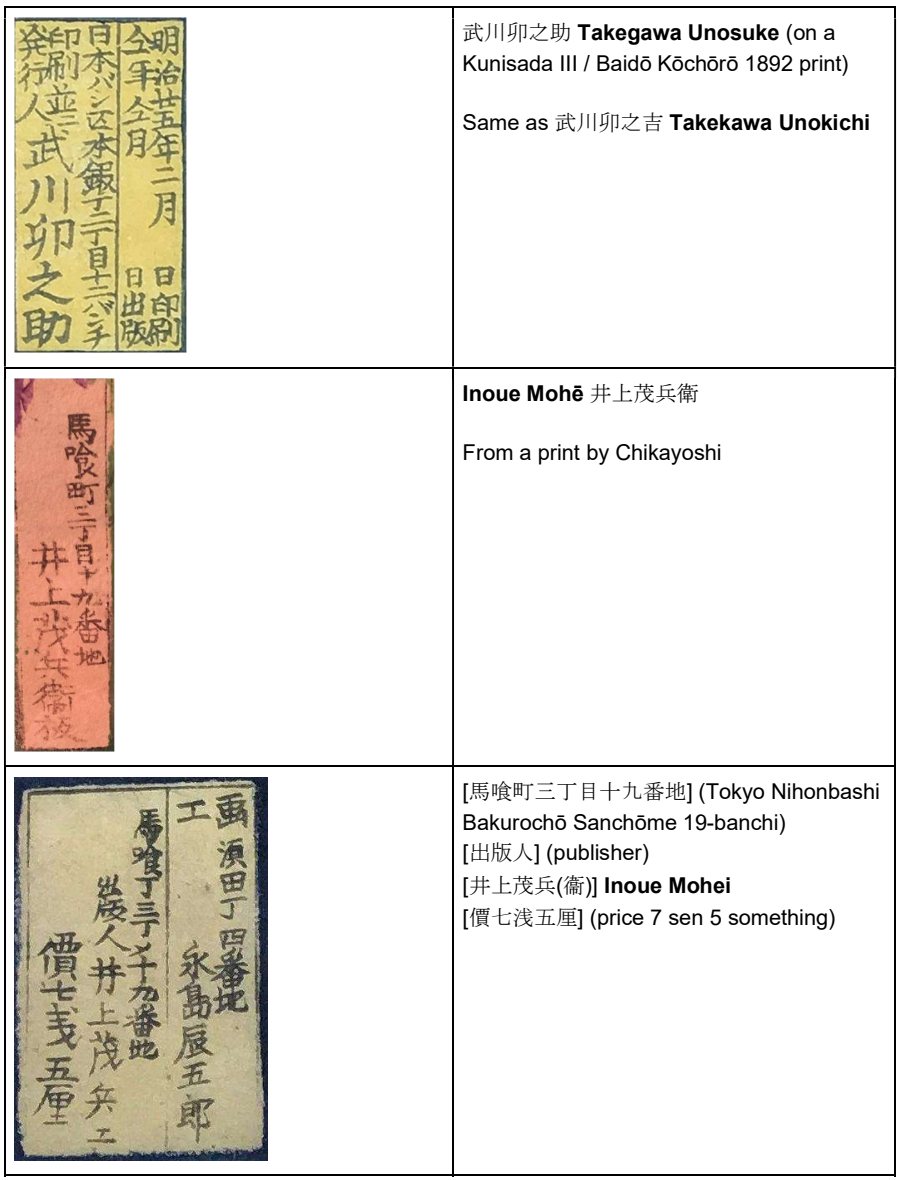 明治廿五年二月 日印刷
仝年仝月 日出版
日本バシ区本銀丁二丁目十二バンチ
印刷並ニ
発行人 武川卯之助
武川卯之助 Takegawa Unosuke (on a
Kunisada III / Baidō Kōchōrō 1892 print)
Same as 武川卯之吉 Takekawa Unokichi
馬喰町三丁目十九番地
井上茂兵衛板
Inoue Mohē 井上茂兵衛
From a print by Chikayoshi
画工
須田丁四番地
永島辰五郎
馬喰丁三丁メ十九番地
出版人 井上茂兵エ
價七戔五厘
[馬喰町三丁目十九番地] (Tokyo Nihonbashi
Bakurochō Sanchōme 19-banchi)
[出版人] (publisher)
[井上茂兵(衞)] Inoue Mohei
[價七浅五厘] (price 7 sen 5 something)